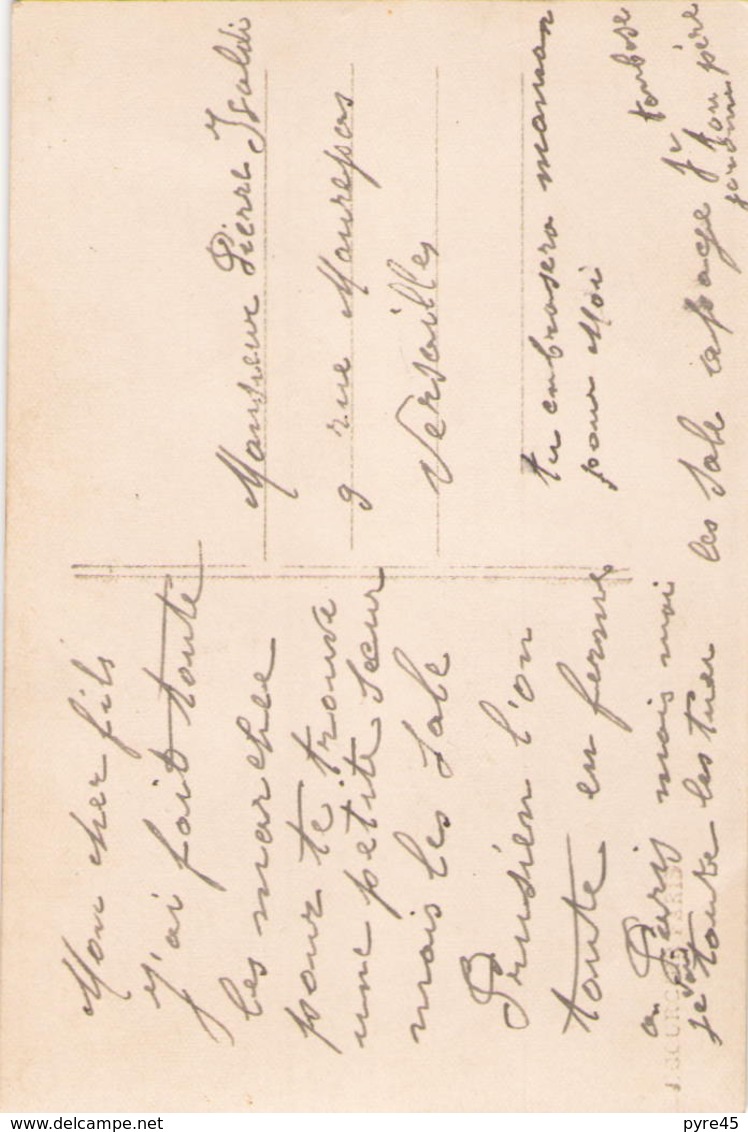 Mon cher fils
J'ai fait toute
les marchee
pour te trouve
une petite Sœur
mais les Sale
Prusien l'on
toute en ferme
a Paris mais moi
je vais toute les tuer
les Sale
Je
ton père
tu enbrasera maman
pour Moi
Monsieur Pierre Isaldi
9 rue Maurepas
Versailles
PARIS
www.delcampe.net
pyre45